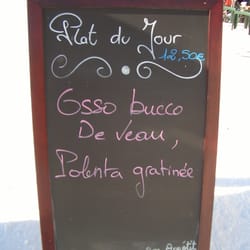 Plat du Jour
12,50€
Osso bucco
De veau,
Polenta gratinée